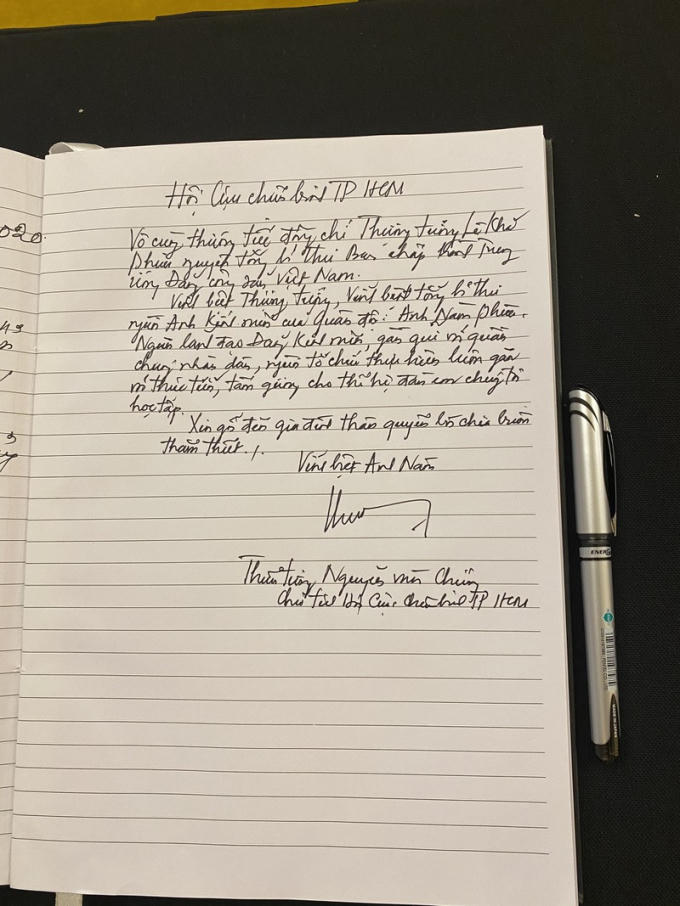 020
Hội Cựu chiến binh TP HCM
Vô cùng thương tiếc đồng chí Thượng tướng Lê Khả
Phiêu nguyên tổng bí thư Ban chấp hành Trung
ương Đảng cộng sản Việt Nam.
Vĩnh biệt Thượng tướng, Vĩnh biệt tổng bí thư
người Anh kính mến của Quân đội: Anh Năm phiêu.
Người lãnh đạo Đảng kính mến, gần gũi với quần
chúng nhân dân, người tổ chức thực hiện luôn gắn
với thực tiễn, tấm gương cho thế hệ đàn con chúng tôi
học tập.
Xin gởi đến gia đình thân quyến lời chia buồn
thắm thiết./.
Vĩnh biệt Anh Năm
Thiếu tướng Nguyễn văn Chương
Chủ tịch Hội Cựu chiến binh TP HCM
ENERGEL